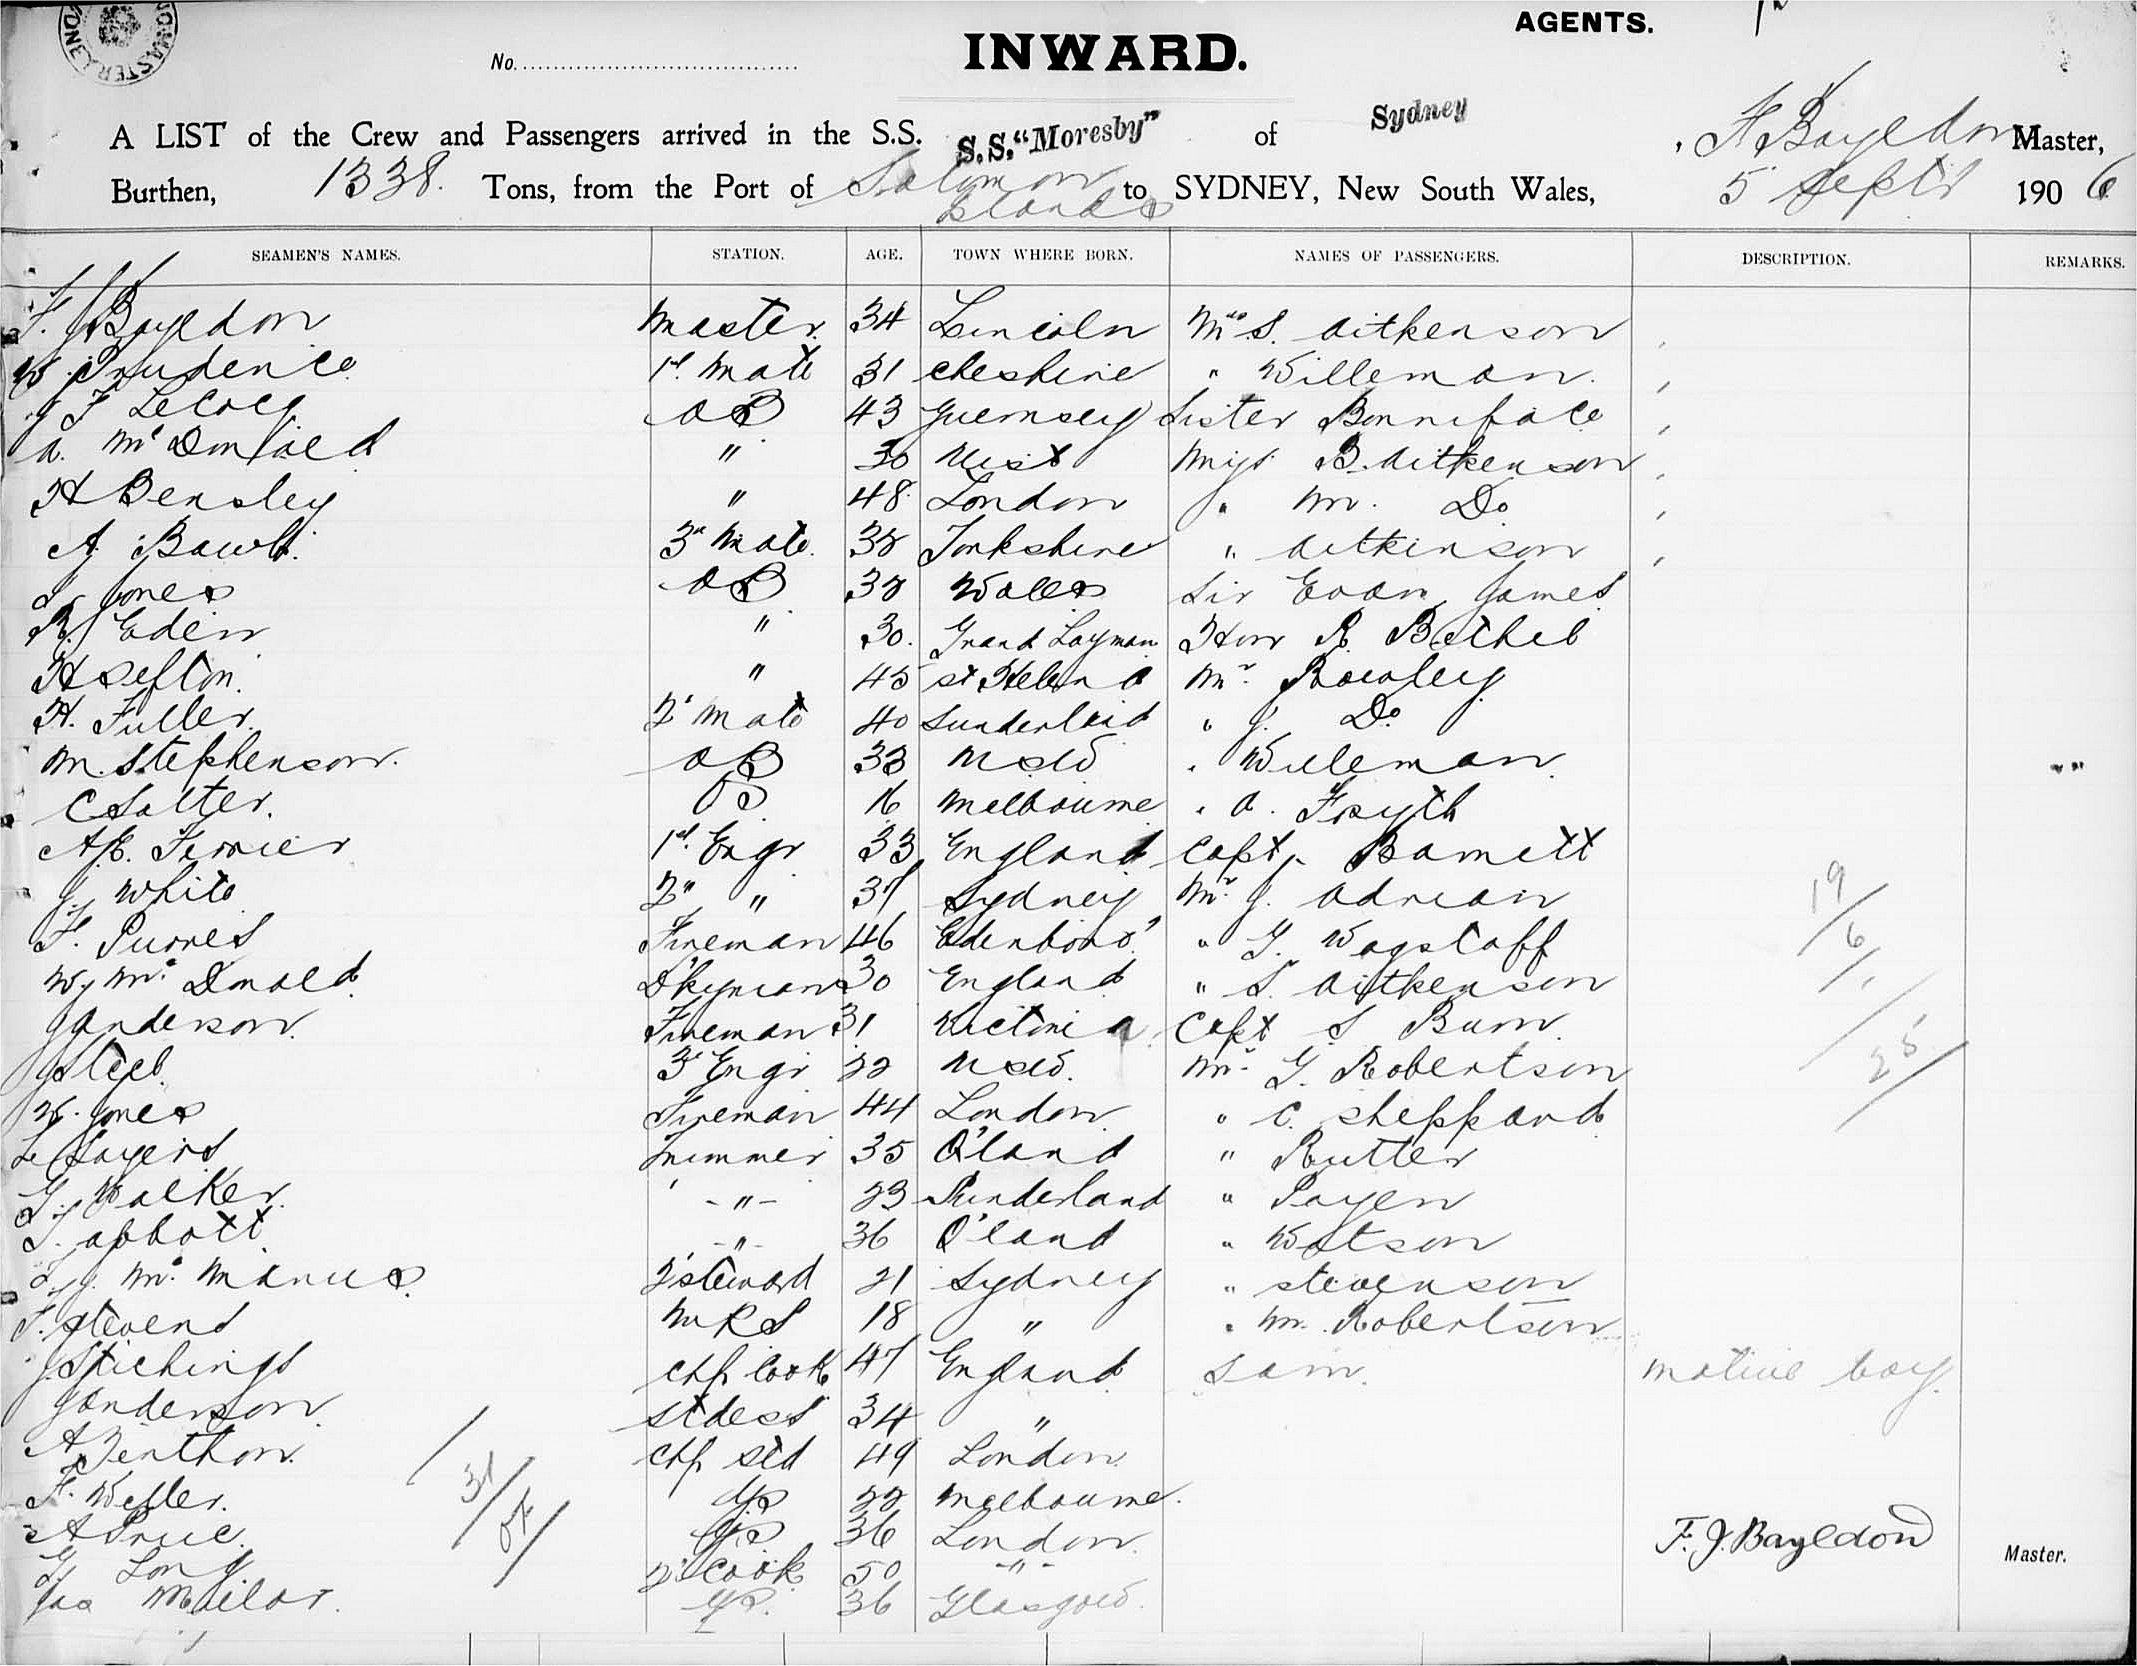 AGENTS.
No.
INWARD.
A LIST of the Crew and Passengers arrived in the S.S. S.S. "Moresby" of Sydney, F Bayldon Master,
Burthen, 1338. Tons, from the Port of Solomon Islands to SYDNEY, New South Wales, 5 Septr 1906
SEAMEN'S NAMES. STATION. AGE. TOWN WHERE BORN. NAMES OF PASSENGERS. DESCRIPTION. REMARKS.
F. J Bayldon Master 34 Lincoln Mrs S. Aitkenson
W Prudence 1st Mate 31 Cheshire " Willeman
J F LeCocq AB 43 Guernsey Sister Bonniface
A. McDonald " 30 Uist Miss B. Aitkenson
H Bensley " 48 London " M. Do
A. 3rd Mate 38 Yorkshire " Aitkinson
Jones AB 38 Wales Sir Evan James
R Eden " 30. Grand Cayman Hon R. Bethel
H Sefton " 45 St Helena Mr Rowley
H. Fuller. 2d Mate 40 Sunderland " J. Do
M. Stephenson. AB 33 NSW " Willeman
C Salter. OS 16 Melbourne " A. Fsyth
A.E. Ferrier 1st Engr 33 England Capt. Barnett
J. White 2d " 37 Sydney Mr J. Adrian
F. Purves Fireman 46 Edenboro' " G. Wagstaff
W J McDonald D'keyman 30 England " S. Aitkenson
J Anderson Fireman 31 Victoria Capt S Burn
J Steel 3d Engr 22 NSW. Mr G. Robertson
W. Jones Fireman 44 London " C. Sheppard
L Sayers Trimmer 35 Q'land " Rutter
G. Walker " 23 Sunderland " Payen
T. Abbott " 36 Q'land " Watson
J. McManus 2d Steward 21 Sydney " Stevenson
S. Stevens MRS 18 " " M. Robertson
J. Stichings Chf Cook 47 England Sam. Native boy.
J Anderson Stdess 34 "
A Zenthon Chf Std 49 London
F. Weller. GS 22 Melbourne.
A Price GS 36 London
G Long 2d Cook 50 "
Jas Mailar. GS. 36 Glasgow.
19
6
1
25
31
F. J. Bayldon Master.